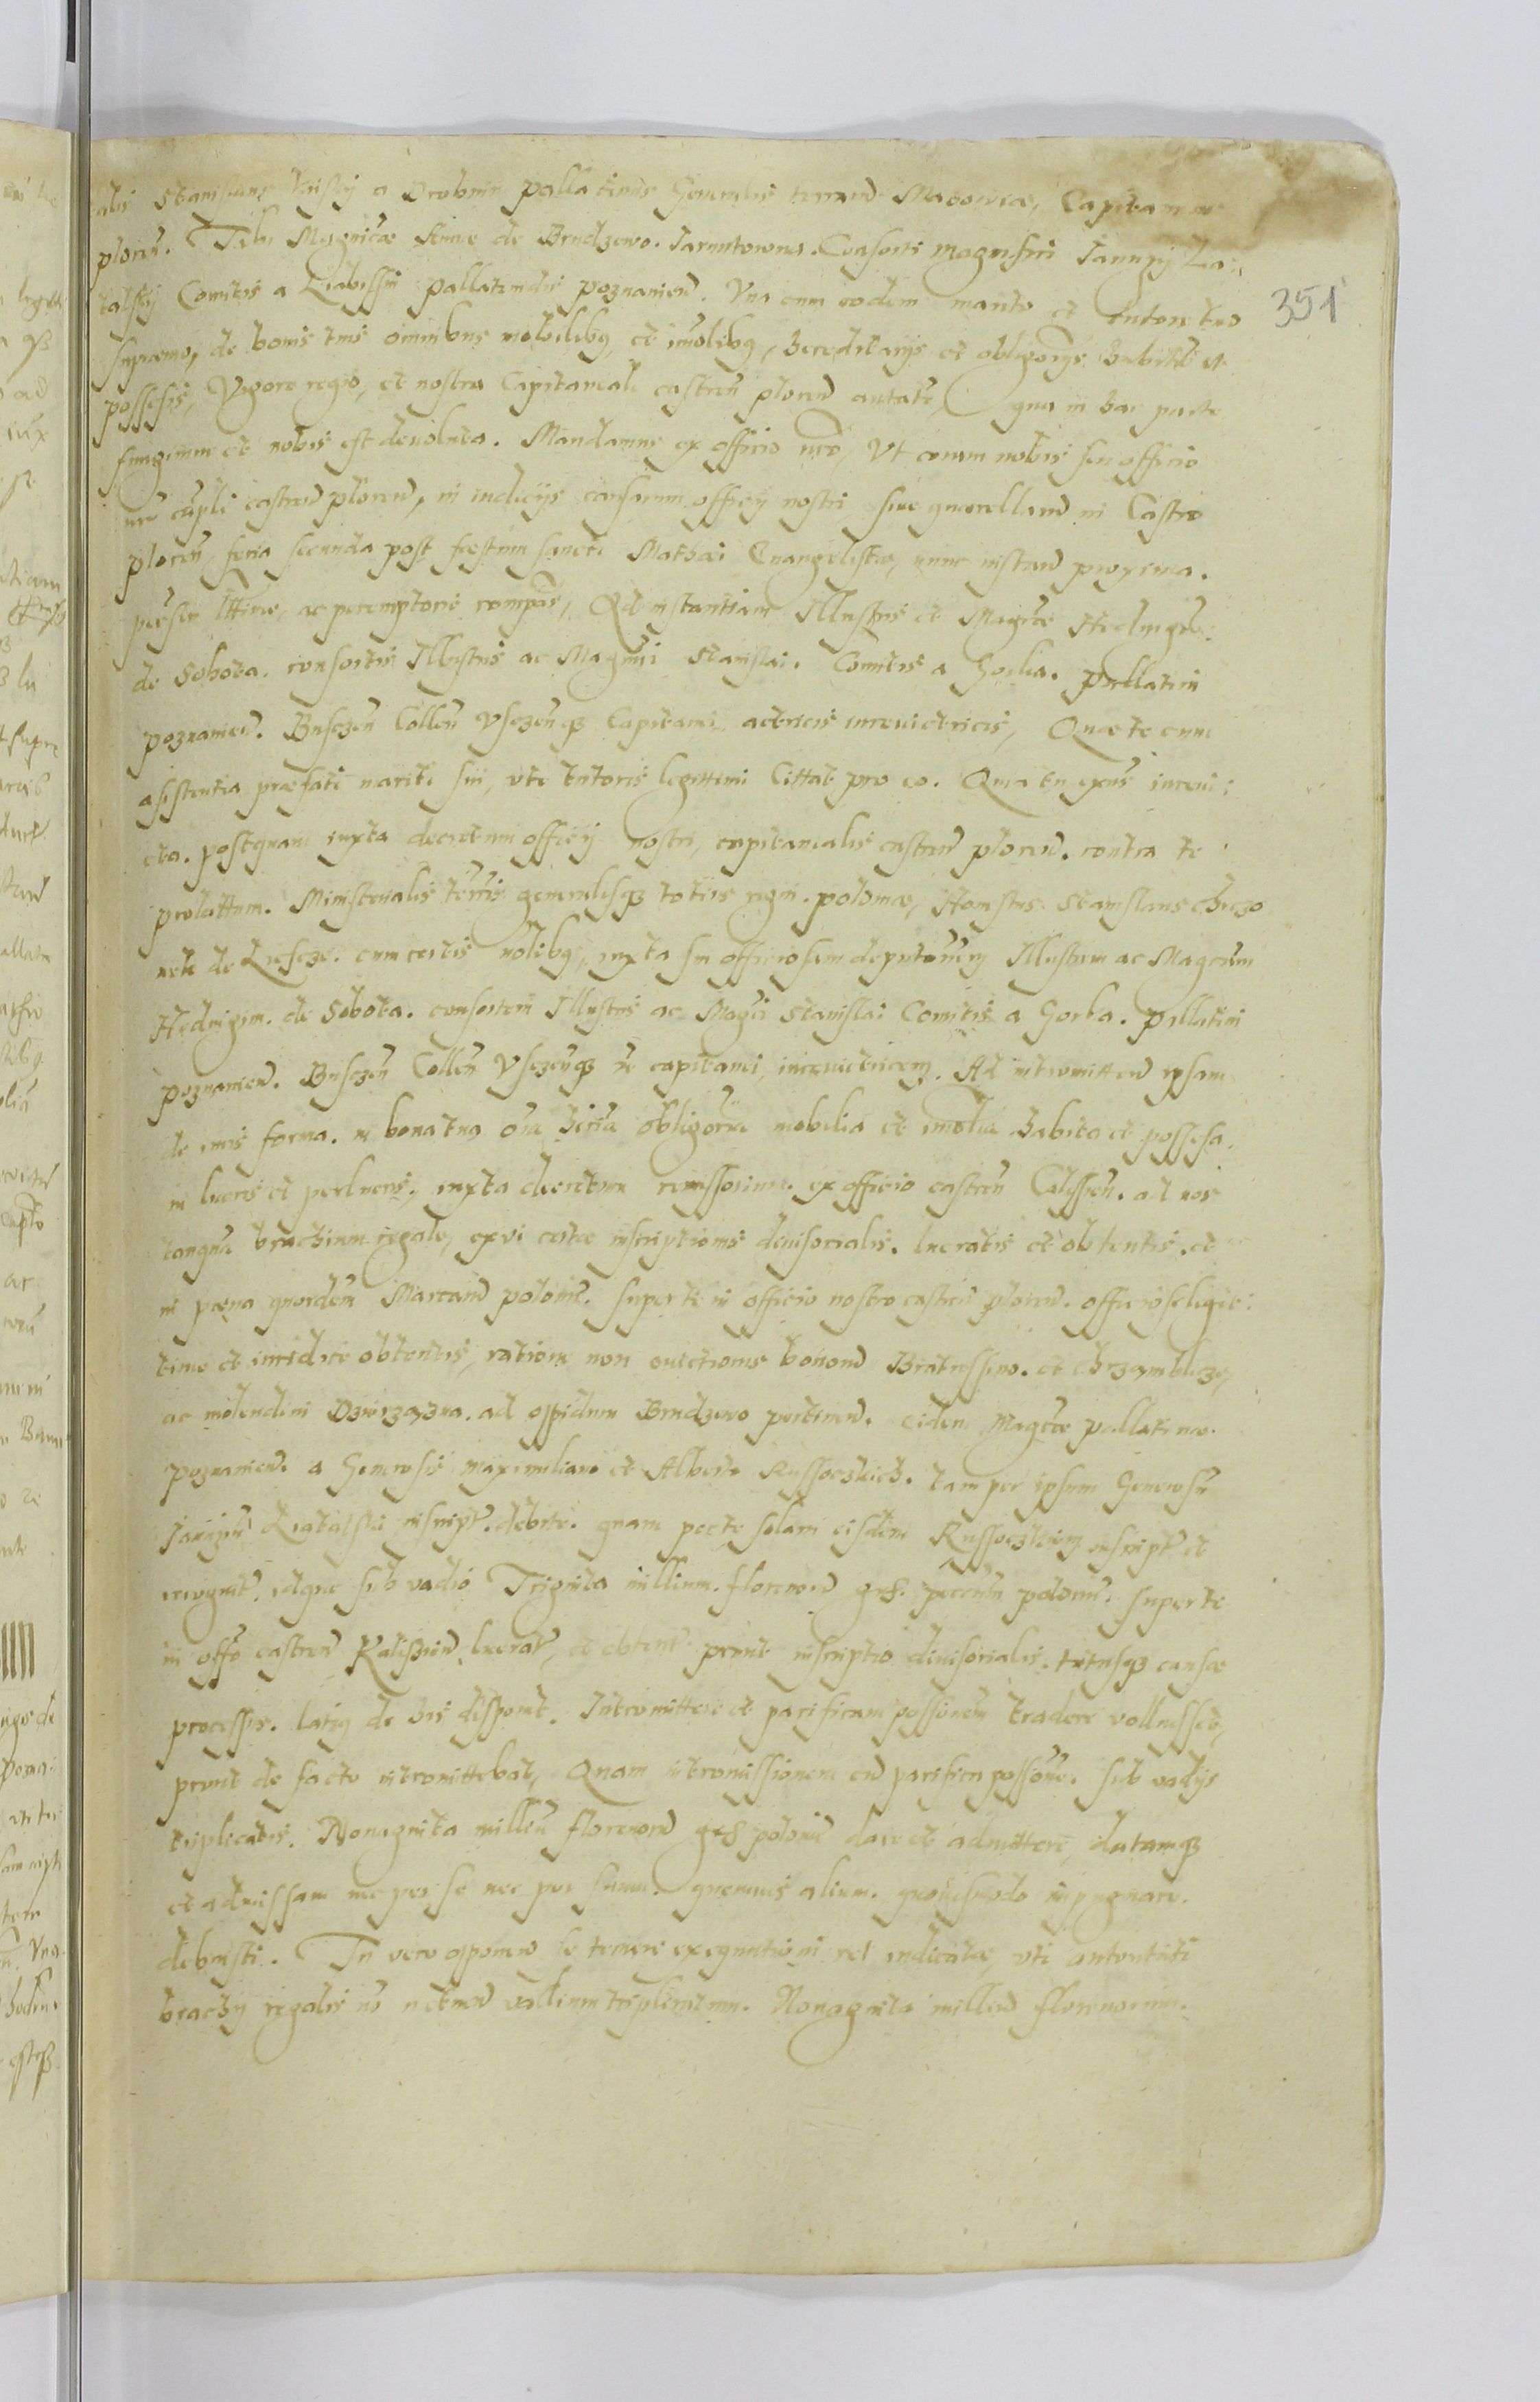 alis Stanislaus Krisky a Drobnin Pallatinus Generalis terrarum Masoviæ, Capitaneus
plocen. Tibi Magnificæ Annæ de Brudzewo. Jarnutowna. Consorti Magnifici Janussy La:
talsky Comitis a Labissin pallatinidis poznanien. Una cum eodem marito et tutore tuo
supremo, de bonis tuis omnibus mobilibus et imolibus, hereditarijs et obligorijs habitis et
possessis, Vigore regio, et nostra Capitaneali castren plocen autate, qua in hac parte
fungimur et nobis est devoluta. Mandamus ex officio nro, Ut coram nobis seu officio
nro capli castren plocen, in iudicijs causarum officij nostri sive querellarum in Castro
plocen feria secunda post festum sancti Mathæi Evangelistæ, nunc instan proxima.
psonliter, ac peremptorie compas, Ad instantiam Illustris et Magcæ Hedvigis
de Sobota. consortis Illustris ac Magnifici Stanislai. Comitis a Gorka. pallatini
poznanien. Buscen Collen Usczenq Capitanei actricis inevictricis, Quæ te cum
assistentia præfati mariti sui, uti tutoris legittimi Cittat pro eo. Quia tu exns inevi:
cta. postquam iuxta decretum officij nostri, capitanealis castren plocen. contra te
prolattum. Ministerialis terris generalisq totius regni. poloniæ, Honestus Stanislaus
de cum certis nolibus, iuxta sui officiosam deputonem Illustrem ac Magcam
Hedvigem. de Sobota. consortem Illustris ac Magci Stanislai Comitis a Gorka. pallatini
poznanien. Buscen Collen Usczenq capitanei, inevictricem. Ad intromitten ipsam
de iuris forma. in bona tua oia hæria obligoria mobilia et imolia habita et possessa.
in lucris et perlucris, iuxta decretum remissorium. ex officio castren Calissien. ad nos
tanqua brachium regale, ex vi certæ inscriptionis divisorialis. lucratis et obtentis. et
in pæna quordem Marcarum polonic. super te in officio nostro castren plocen. officiose legit:
time et iuridice obtentis, ratione non evictionis bonorum et
ac molendini ad oppidum Brudzewo pertinen. eidem Magcæ pallatinæ.
poznanien. a Generosis Maximiliano et Alberto Russoczkich. tam per ipsum Generosu
Janusiu Latalski inscript. debite. quam per te solam eisdem inscript et
recognit, idque sub vadio Triginta millium. florenorum pecuniæ polonic. super te
in offo castren Kaliszien lucrat, et obtent prout inscriptio divisorialis. totusq causæ
processus. latius de his disponit. Intromittere et pacificam possionem tradere voluisset,
prout de facto intromittebat, Quam intromissionem cum pacifica possione. sub vadijs
triplicatis. Nonaginta millen florenorum polonic dare et admittere, datamq
et admissam nec per se nec per summ. quemvis alium. quovismodo impugnare.
debuisti. Tu vero opponens te temere exequutioni rei iudicatæ, uti autoritati
brachij regalis vadium triplicatum. Nonaginta millen florenorum.
351